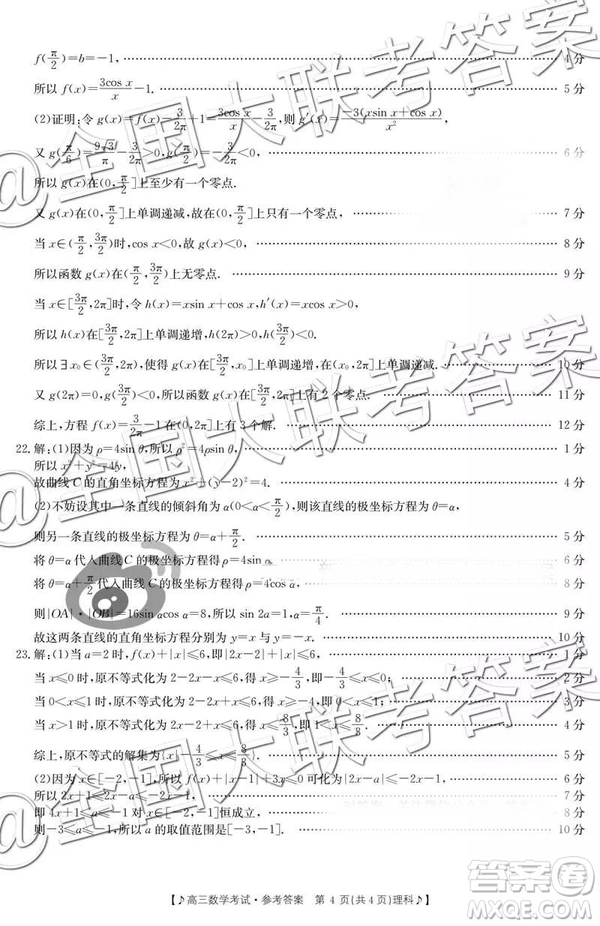 f(π/2)=b=-1, …… 4分
所以 f(x)=3cos x/x-1. …… 5分
(2)证明:令 g(x)=f(x)-3/2π+1=3cos x/x-3/2π,则 g′(x)=-3(xsin x+cos x)/x²,
又 g(π/6)=9√3/π-3/2π>0,g(π/2)=-3/2π<0, …… 6分
所以 g(x)在(0,π/2]上至少有一个零点.
又 g(x)在(0,π/2]上单调递减,故在(0,π/2]上有一个零点. …… 7分
当 x∈(π/2,3π/2)时,cos x<0,故 g(x)<0, …… 8分
所以函数 g(x)在(π/2,3π/2)上无零点. …… 9分
当 x∈[3π/2,2π]时,令 h(x)=xsin x+cos x,h′(x)=xcos x>0,
所以 h(x)在[3π/2,2π]上单调递增,h(2π)>0,h(3π/2)<0.
所以∃x₀∈(3π/2,2π),使得 g(x)在[3π/2,x₀)上单调递增,在(x₀,2π]上单调递减. …… 10分
又 g(2π)=0,g(3π/2)<0,所以 g(x)在[3π/2,2π]上有2个零点. …… 11分
综上,方程 f(x)=3/2π-1在(0,2π]上有3个解. …… 12分
22.解:(1)因为 ρ=4sin θ,所以 ρ²=4ρsin θ, …… 1分
所以 x²+y²=4y,
故曲线 C 的直角坐标方程为 x²+(y-2)²=4. …… 4分
(2)不妨设其中一条直线的倾斜角为 α(0<α<π/2),则该直线的极坐标方程为 θ=α,
则另一条直线的极坐标方程为 θ=α+π/2. …… 5分
将 θ=α代入曲线 C 的极坐标方程得 ρ=4sin α, …… 6分
将 θ=α+π/2代入曲线 C 的极坐标方程得 …… 8分
则|OA|·|OB|=16sin αcos α=8,所以 sin 2α=1,α=π/4. …… 9分
故这两条直线的直角坐标方程分别为 y=x 与 y=-x. …… 10分
23.解:(1)当 a=2时,f(x)+|x|≤6,即|2x-2|+|x|≤6, …… 1分
当 x≤0时,原不等式化为 2-2x-x≤6,得 x≥-4/3,即-4/3≤x≤0; …… 2分
当 0<x≤1时,原不等式化为 2-2x+x≤6,得 x≥-4,即 0<x≤1; …… 3分
当 x>1时,原不等式化为 2x-2+x≤6,得 x≤8/3,即 1<x≤8/3. …… 4分
综上,原不等式的解集为{x|-4/3≤x≤8/3}. …… 5分
(2)因为 x∈[-2,-1],所以 f(x)+|x-1|+3x≤0可化为|2x-a|≤-2x-1, …… 6分
所以 2x+1≤2x-a≤-2x-1, …… 7分
即 4x+1≤a≤-1对 x∈[-2,-1]恒成立, …… 8分
则-3≤a≤-1,所以 a 的取值范围是[-3,-1]. …… 10分
【♪高三数学考试·参考答案 第4页(共4页)理科♪】
@全国大联考答案
@全国大联考答案
@全国大联考答案
答案圈
MXQE.COM